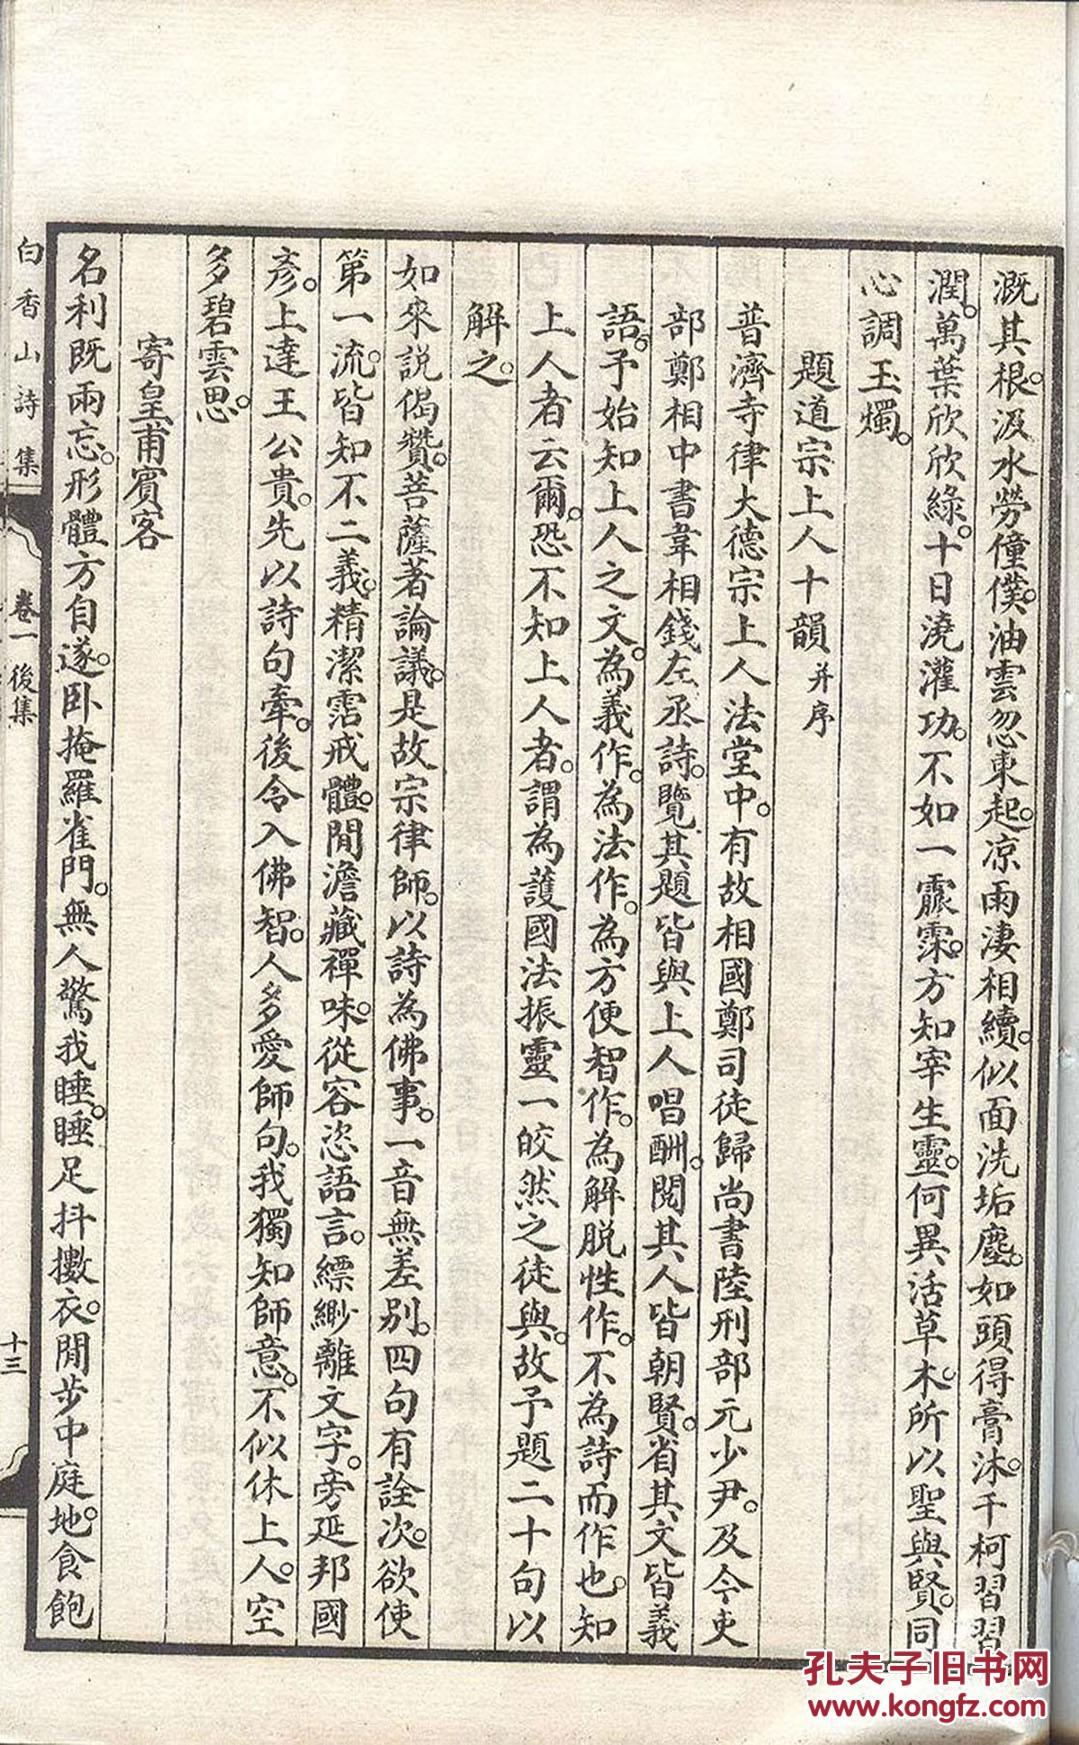 溉其根。汲水勞僮僕。油雲忽東起。凉雨淒相續。似面洗垢塵。如頭得膏沐。千柯習習
潤。萬葉欣欣綠。十日澆灌功。不如一霢霂。方知宰生靈。何異活草木。所以聖與賢。同
心調玉燭。
題道宗上人十韻并序
普濟寺律大德宗上人法堂中。有故相國鄭司徒歸尚書陸刑部元少尹。及今吏
部鄭相中書韋相錢左丞詩。覽其題皆與上人唱酬。閱其人皆朝賢。省其文皆義
語。予始知上人之文。為義作。為法作。為方便智作。為解脱性作。不為詩而作也。知
上人者云爾。恐不知上人者。謂為護國法振靈一皎然之徒與。故予題二十句以
解之。
如來說偈贊。菩薩著論議。是故宗律師。以詩為佛事。一音無差别。四句有詮次。欲使
第一流。皆知不二義。精潔霑戒體。閒澹藏禪味。從容恣語言。縹緲離文字。旁延邦國
彥。上達王公貴。先以詩句牽。後令入佛智。人多愛師句。我獨知師意。不似休上人。空
多碧雲思。
寄皇甫賓客
名利既兩忘。形體方自遂。卧掩羅雀門。無人驚我睡。睡足抖擻衣。閒步中庭地。食飽
白香山詩集
卷一後集
十三
孔夫子旧书网
www.kongfz.com